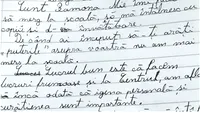 Sunt Ramona. Mie îmi
să merg la școală, să mă întâlnesc cu
copiii și d-învățătoare.
De când ai început să-ți arăți
"puterile" asupra voastră nu am mai
mers la școală.
Lucrul bun este că facem
lucruri frumoase și la Centrul, am aflat
încă odată că igiena personală și
curățenia sunt importante.